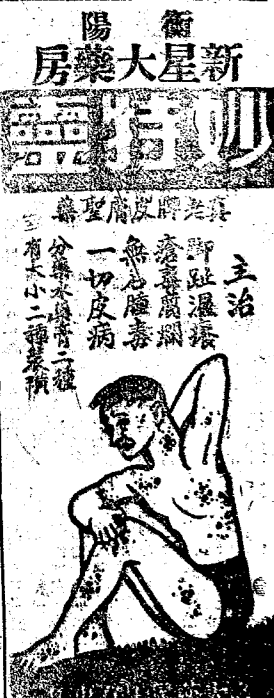 衡陽
新星大藥房
妙特靈
老牌皮膚聖藥
主治
脚趾濕癢
瘡毒腐爛
無名腫毒
一切皮病
分藥水與膏二種
有大小二種裝璜